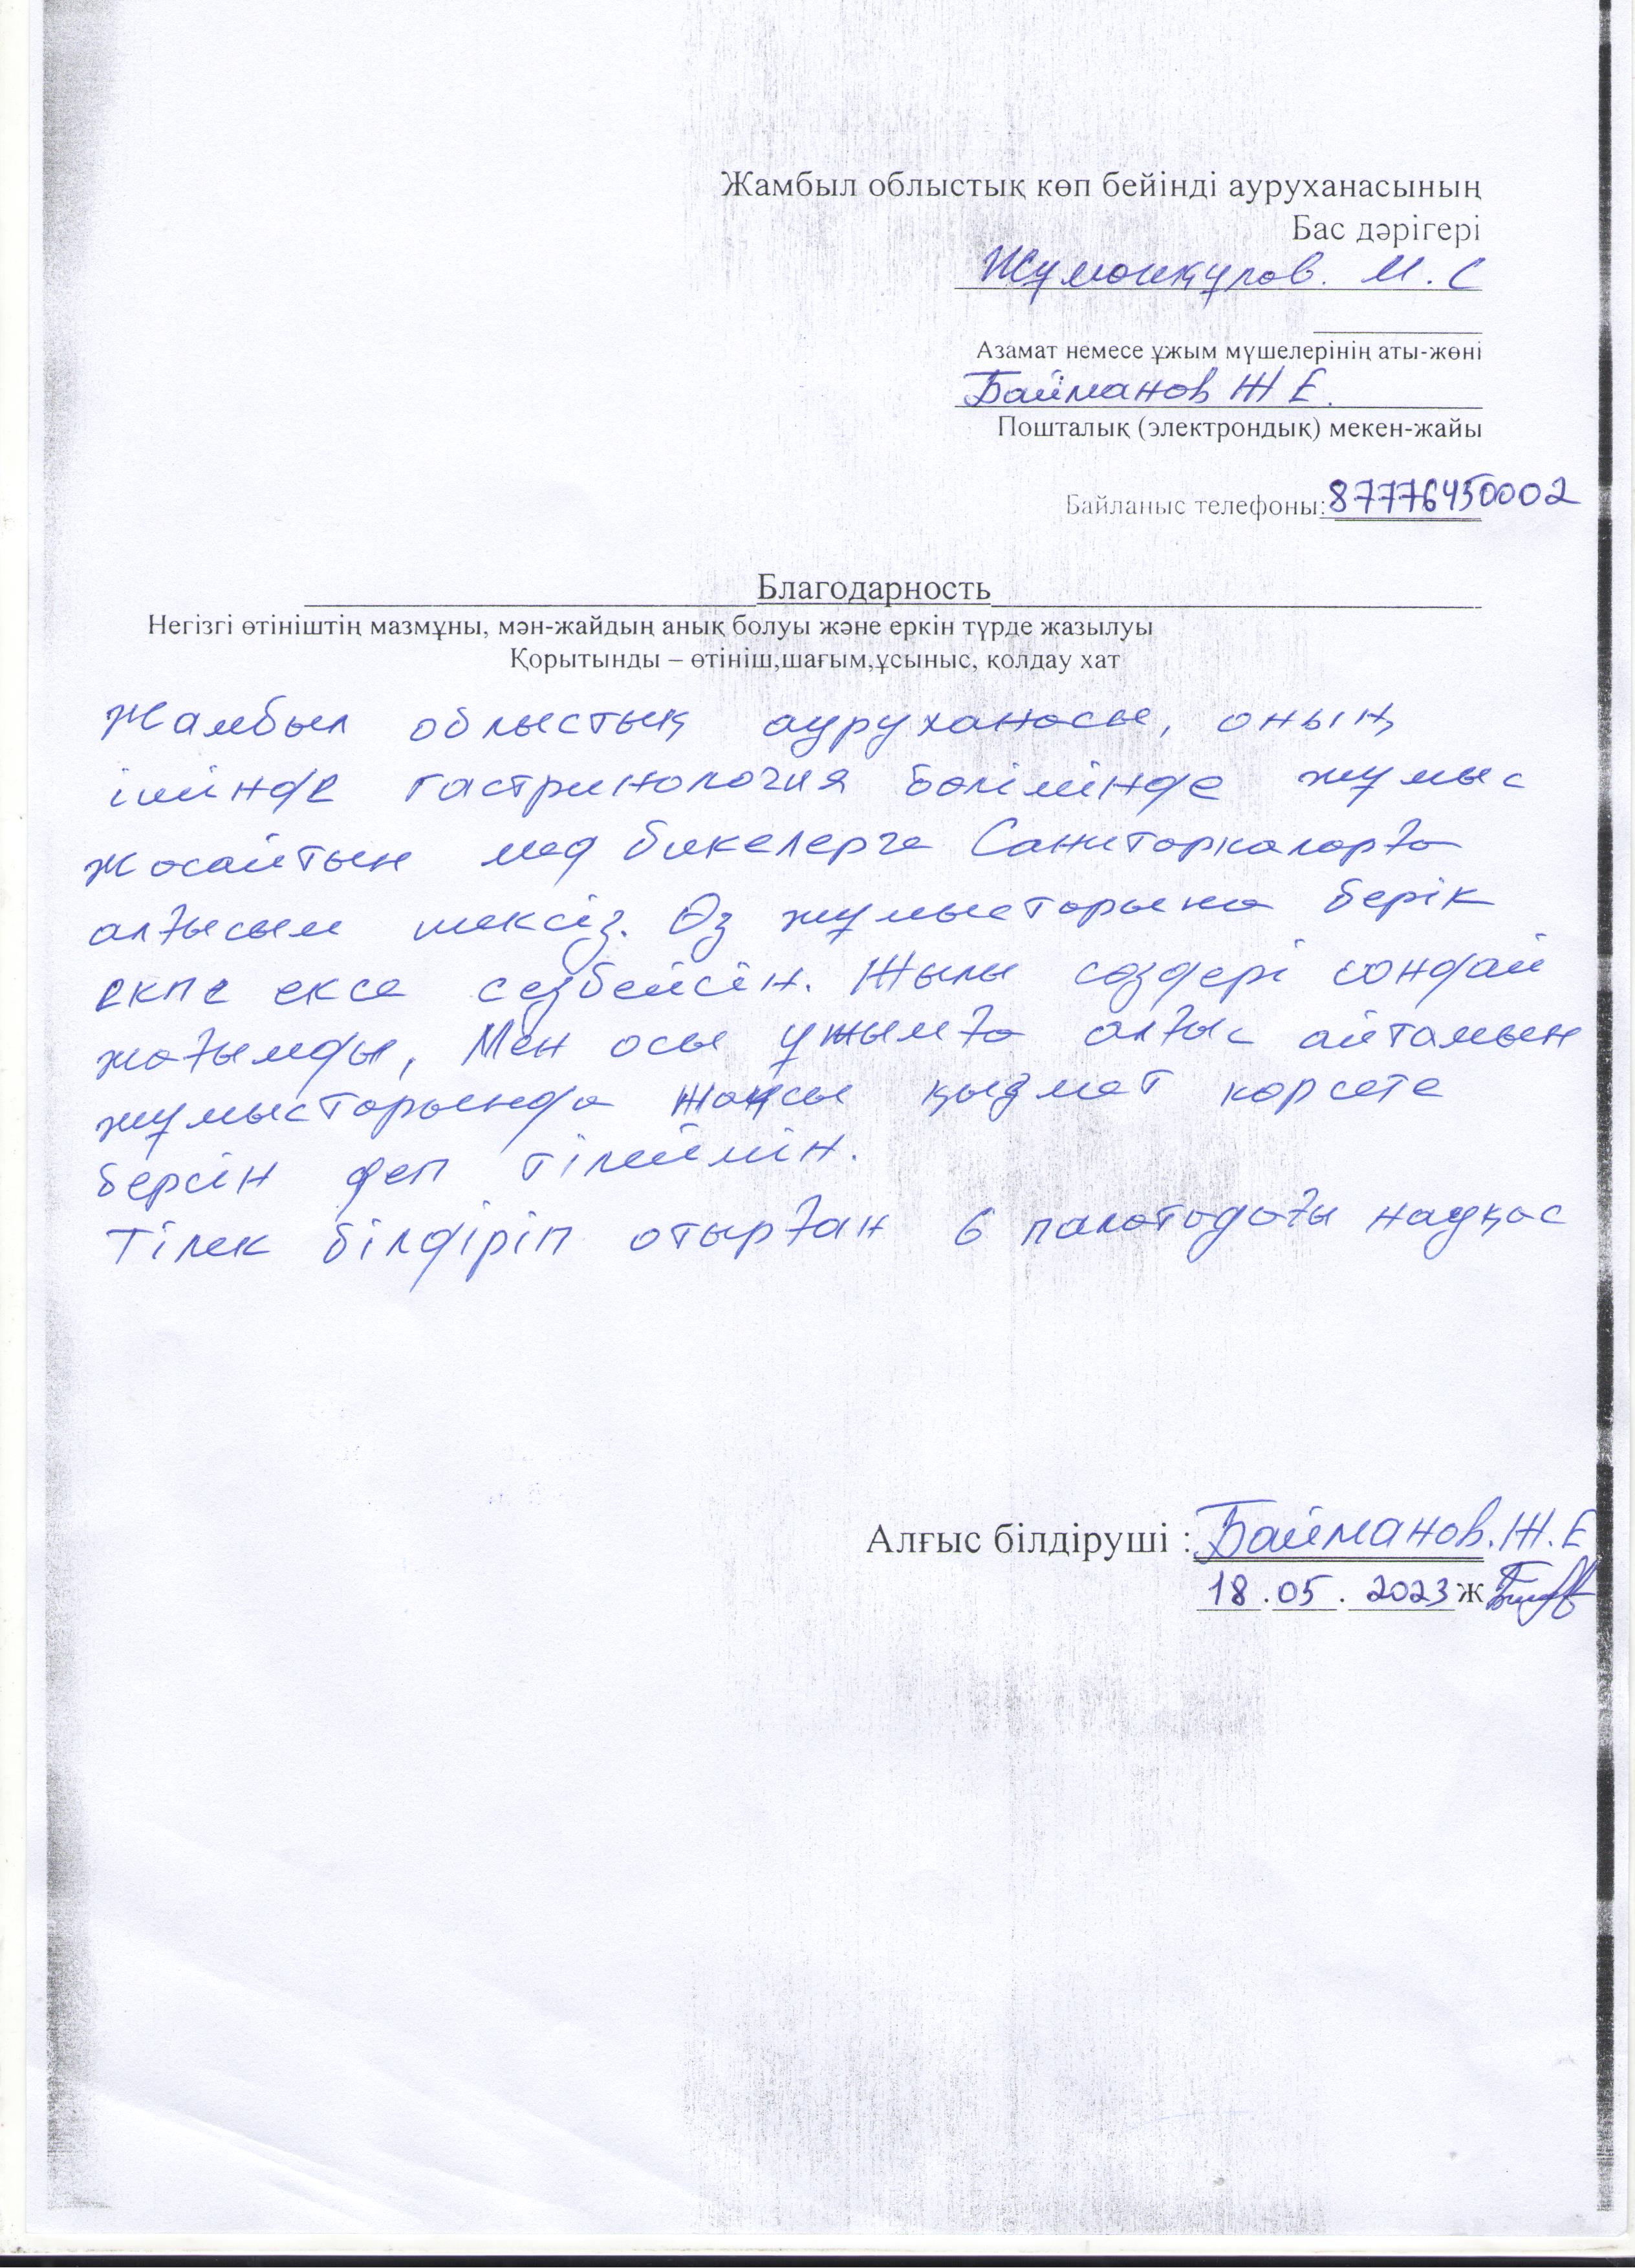 Жамбыл облыстық көп бейінді ауруханасының
Бас дәрігері
Жұмонқұлов. М. С
Азамат немесе ұжым мүшелерінің аты-жөні
Байманов Ж Е.
Пошталық (электрондық) мекен-жайы
Байланыс телефоны: 87776450002
Благодарность
Негізгі өтініштің мазмұны, мән-жайдың анық болуы және еркін түрде жазылуы
Қорытынды – өтініш,шағым,ұсыныс, қолдау хат
Жамбыл облыстық ауруханасы, оның
ішінде гастринология бөлімінде жұмыс
жасайтын мед бикелерге Санитаркаларға
алғысым шексіз. Өз жұмыстарына берік
екпе ексе сезбейсің. Жылы сөздері сондай
жағымды, Мен осы ұжымға алғыс айтамын
жұмыстарында жақсы қызмет көрсете
берсін деп тілеймін.
Тілек білдіріп отырған 6 палатадағы науқас
Алғыс білдіруші : Байманов. Ж. Е
18 . 05 . 2023 ж